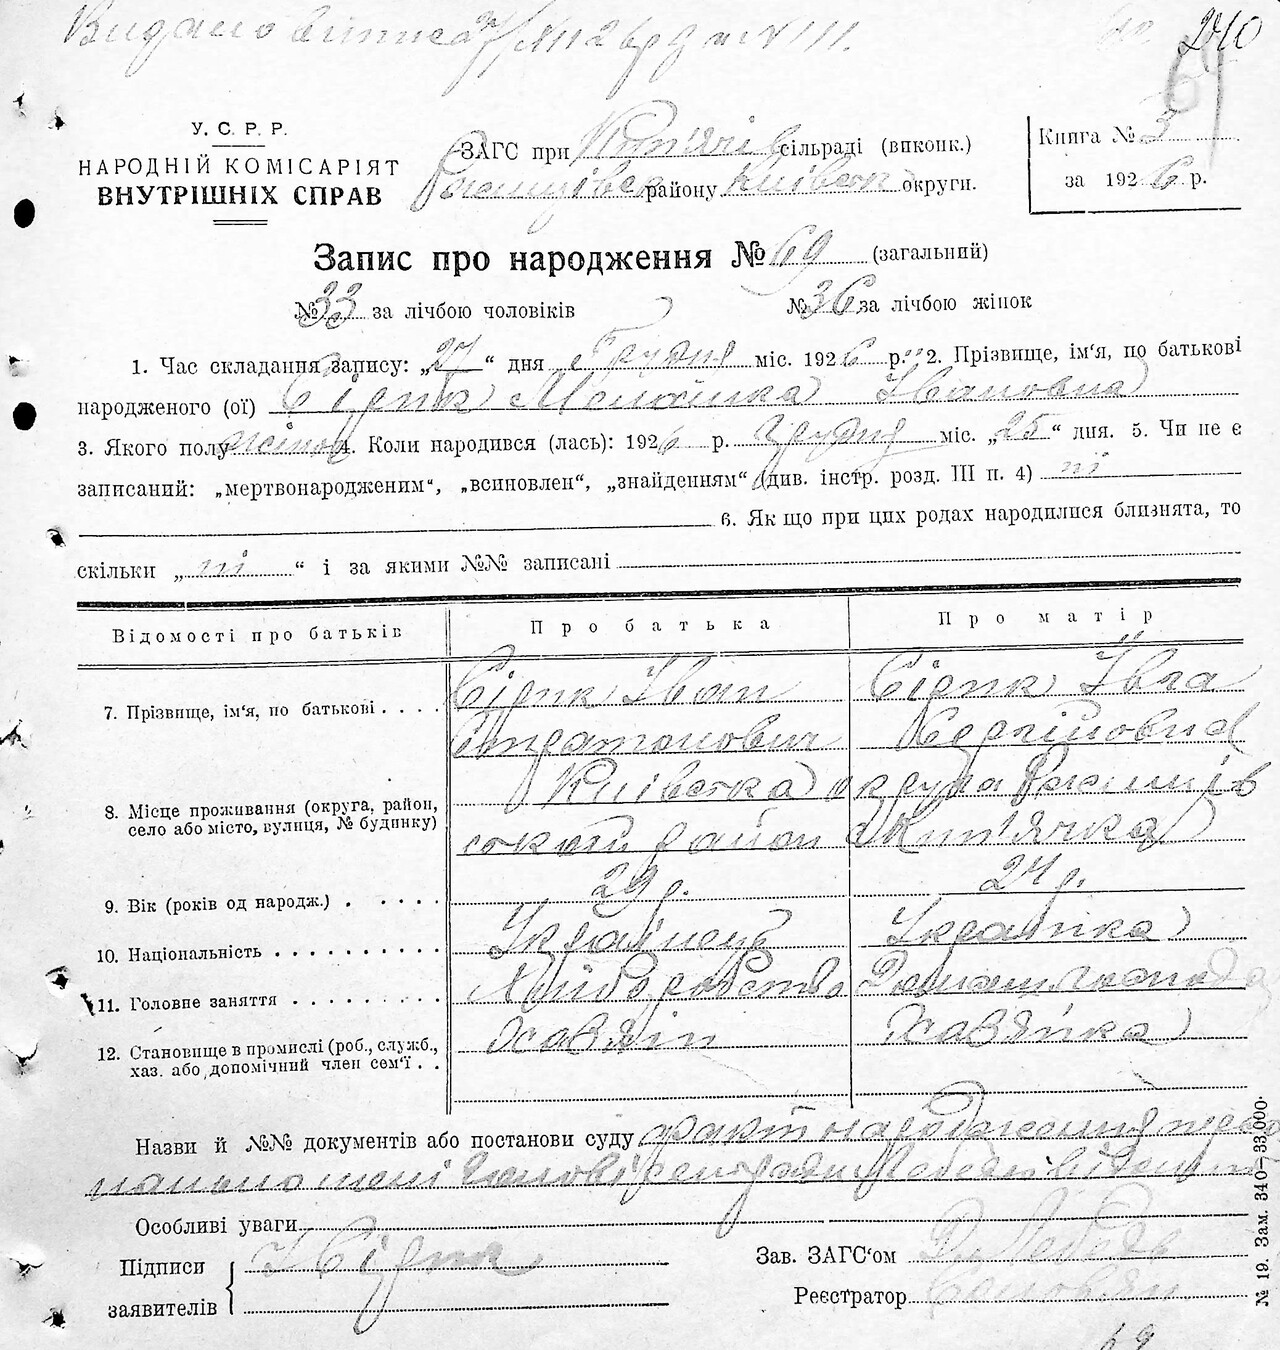 Видано витис
240
69
У. С. Р. Р.
НАРОДНІЙ КОМІСАРІЯТ
ВНУТРІШНІХ СПРАВ
ЗАГС при Кип'ячів сільраді (виконк.)
району Київськ округи.
Книга № 3
за 1926 р.
Запис про народження № 69 (загальний)
№ 33 за лічбою чоловіків № 36 за лічбою жінок
1. Час складання запису: „27“ дня Грудня міс. 1926 р. 2. Прізвище, ім'я, по батькові
народженого (ої) Сірик Ївановна
3. Якого полу жіноч 4. Коли народився (лась): 1926 р. Грудня міс. „25“ дня. 5. Чи не є
записаний: „мертвонародженим“, „всиновлен“, „знайденням“ (див. інстр. розд. III п. 4) ні
6. Як що при цих родах народилися близнята, то
скільки „ні“ і за якими №№ записані
Відомості про батьків Про батька Про матір
7. Прізвище, ім'я, по батькові . . . . Сірик Їван Сірик Ївга
Сергійовна
8. Місце проживання (округа, район, село або місто, вулиця, № будинку) Київська округа Ржищів
ський район
9. Вік (років од народж.) . . . . . 29 р. 24 р.
10. Національність . . . . . . . . . Українець Українка
11. Головне заняття . . . . . . . . Хліборобство Домашн господар
12. Становище в промислі (роб., служб., хаз. або допомічний член сем'ї . . Хазяїн Хазяйка
Назви й №№ документів або постанови суду факт народження
Особливі уваги
Підписи заявителів Ї Сірик
Зав. ЗАГС'ом Лебедь
Реєстратор
№ 19. Зам. 340—33.000.
69